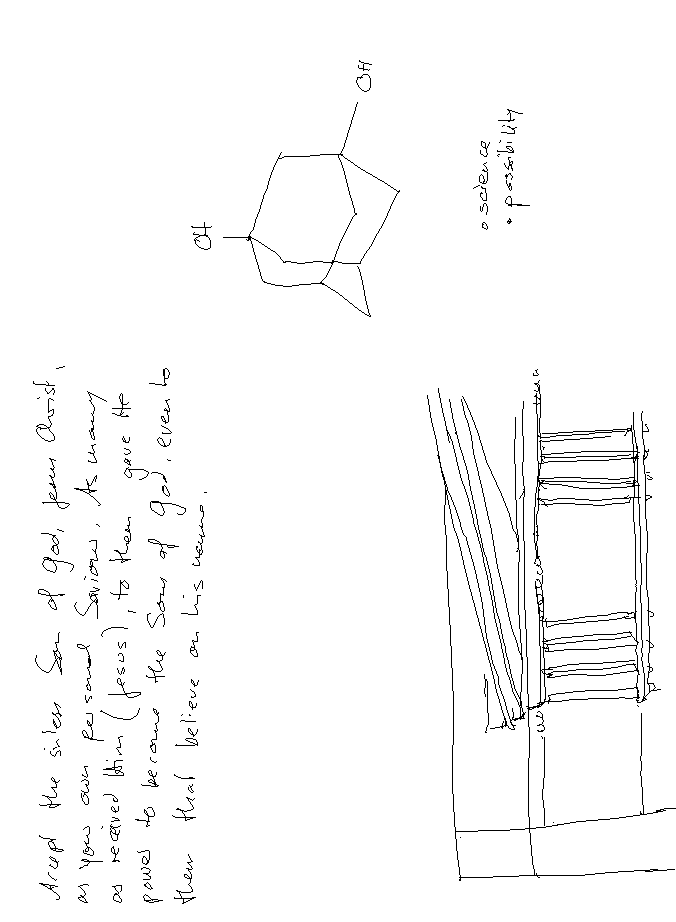 Accept the sinless Son of God, Jesus Christ,
as your own personal Saviour. As many
as received Him (Jesus), to them gave He
power to become the Sons of God, even to
them that believe on his name.
OH
OH
science
possibility